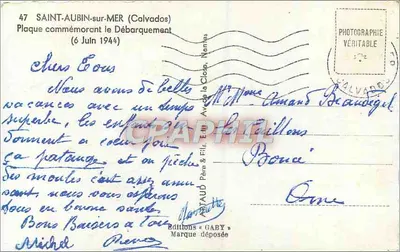 47 SAINT-AUBIN-sur-MER (Calvados)
Plaque commémorant le Débarquement
(6 Juin 1944)
PHOTOGRAPHIE
VÉRITABLE
CALVADOS
Chers Tous
Nous avons de belles
vacances avec un temps
superbe, les enfants s'en
donnent à cœur joie
ça patauge et on pêche
des moules c'est assez amu
sant nous vous espérons
tous en bonne santé
Bons Baisers à Tous
Michel Pierre
Mr Mme Amand
Boucé
Orne
Père & Fils, Edit.
Nantes
Editions « GABY »
Marque déposée
CPARAMA